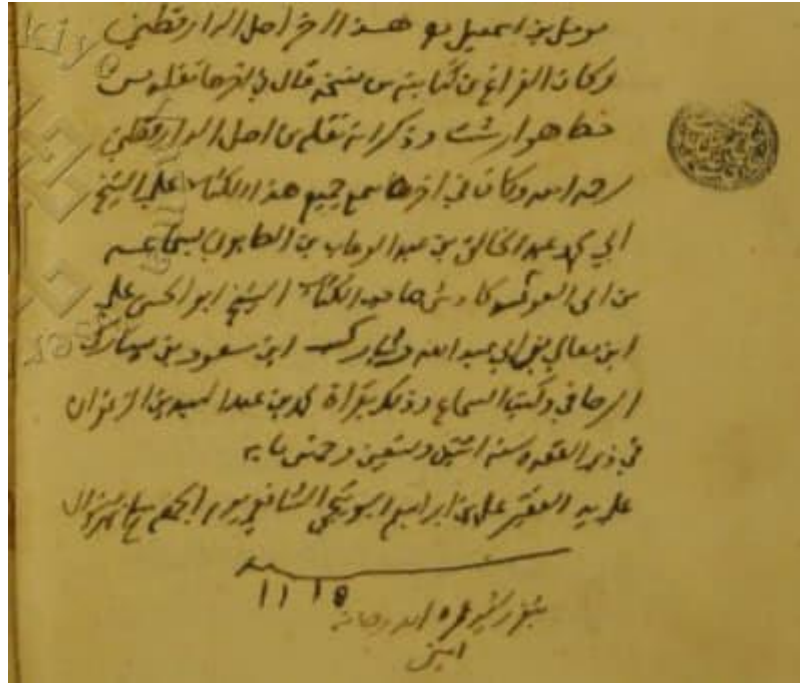 مومل بن اسمعيل به هذا اخر اصل الدارقطني
وكان الفراغ من كتابته من نسخة قال في اخرها نقله من
خط وذكر انه نقله من اصل الدارقطني
رحمه الله وكان في اخرها سمع جميع هذا الكتاب على الشيخ
ابي محمد عبد الخالق بن عبد الوهاب بن الصابوني بسماعه
من ابي العز كادش صاحب الكتاب الشيخ ابو الحسن علي
ابن معالي بن ابي عبد الله والمبارك ابن سعود بن مبارك
الرصافي وكتب السماع وذلك بقراة محمد بن عبد السيد بن الزيتوان
في ذي القعدة سنة اثنين وتسعين وخمس مايه
على يد الفقير علي بن ابراهيم البوتيجي الشافعي يوم الجمعة شوال
سنة
١١١٥
امين